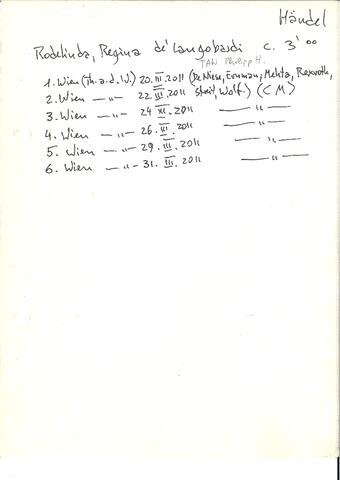 Händel
Rodelinda, Regina de' Langobardi c. 3' 00
TAW Philipp H.
1. Wien (Th.a.d.W.) 20.III.2011 (De Niese, Ernman; Mehta, Rexroth,
2. Wien —"— 22.III.2011 Streit, Wolf.) (C M)
3. Wien —"— 24.III.2011 —"—
4. Wien —"— 26.III.2011 —"—
5. Wien —"— 29.III.2011 —"—
6. Wien —"— 31.III.2011 —"—